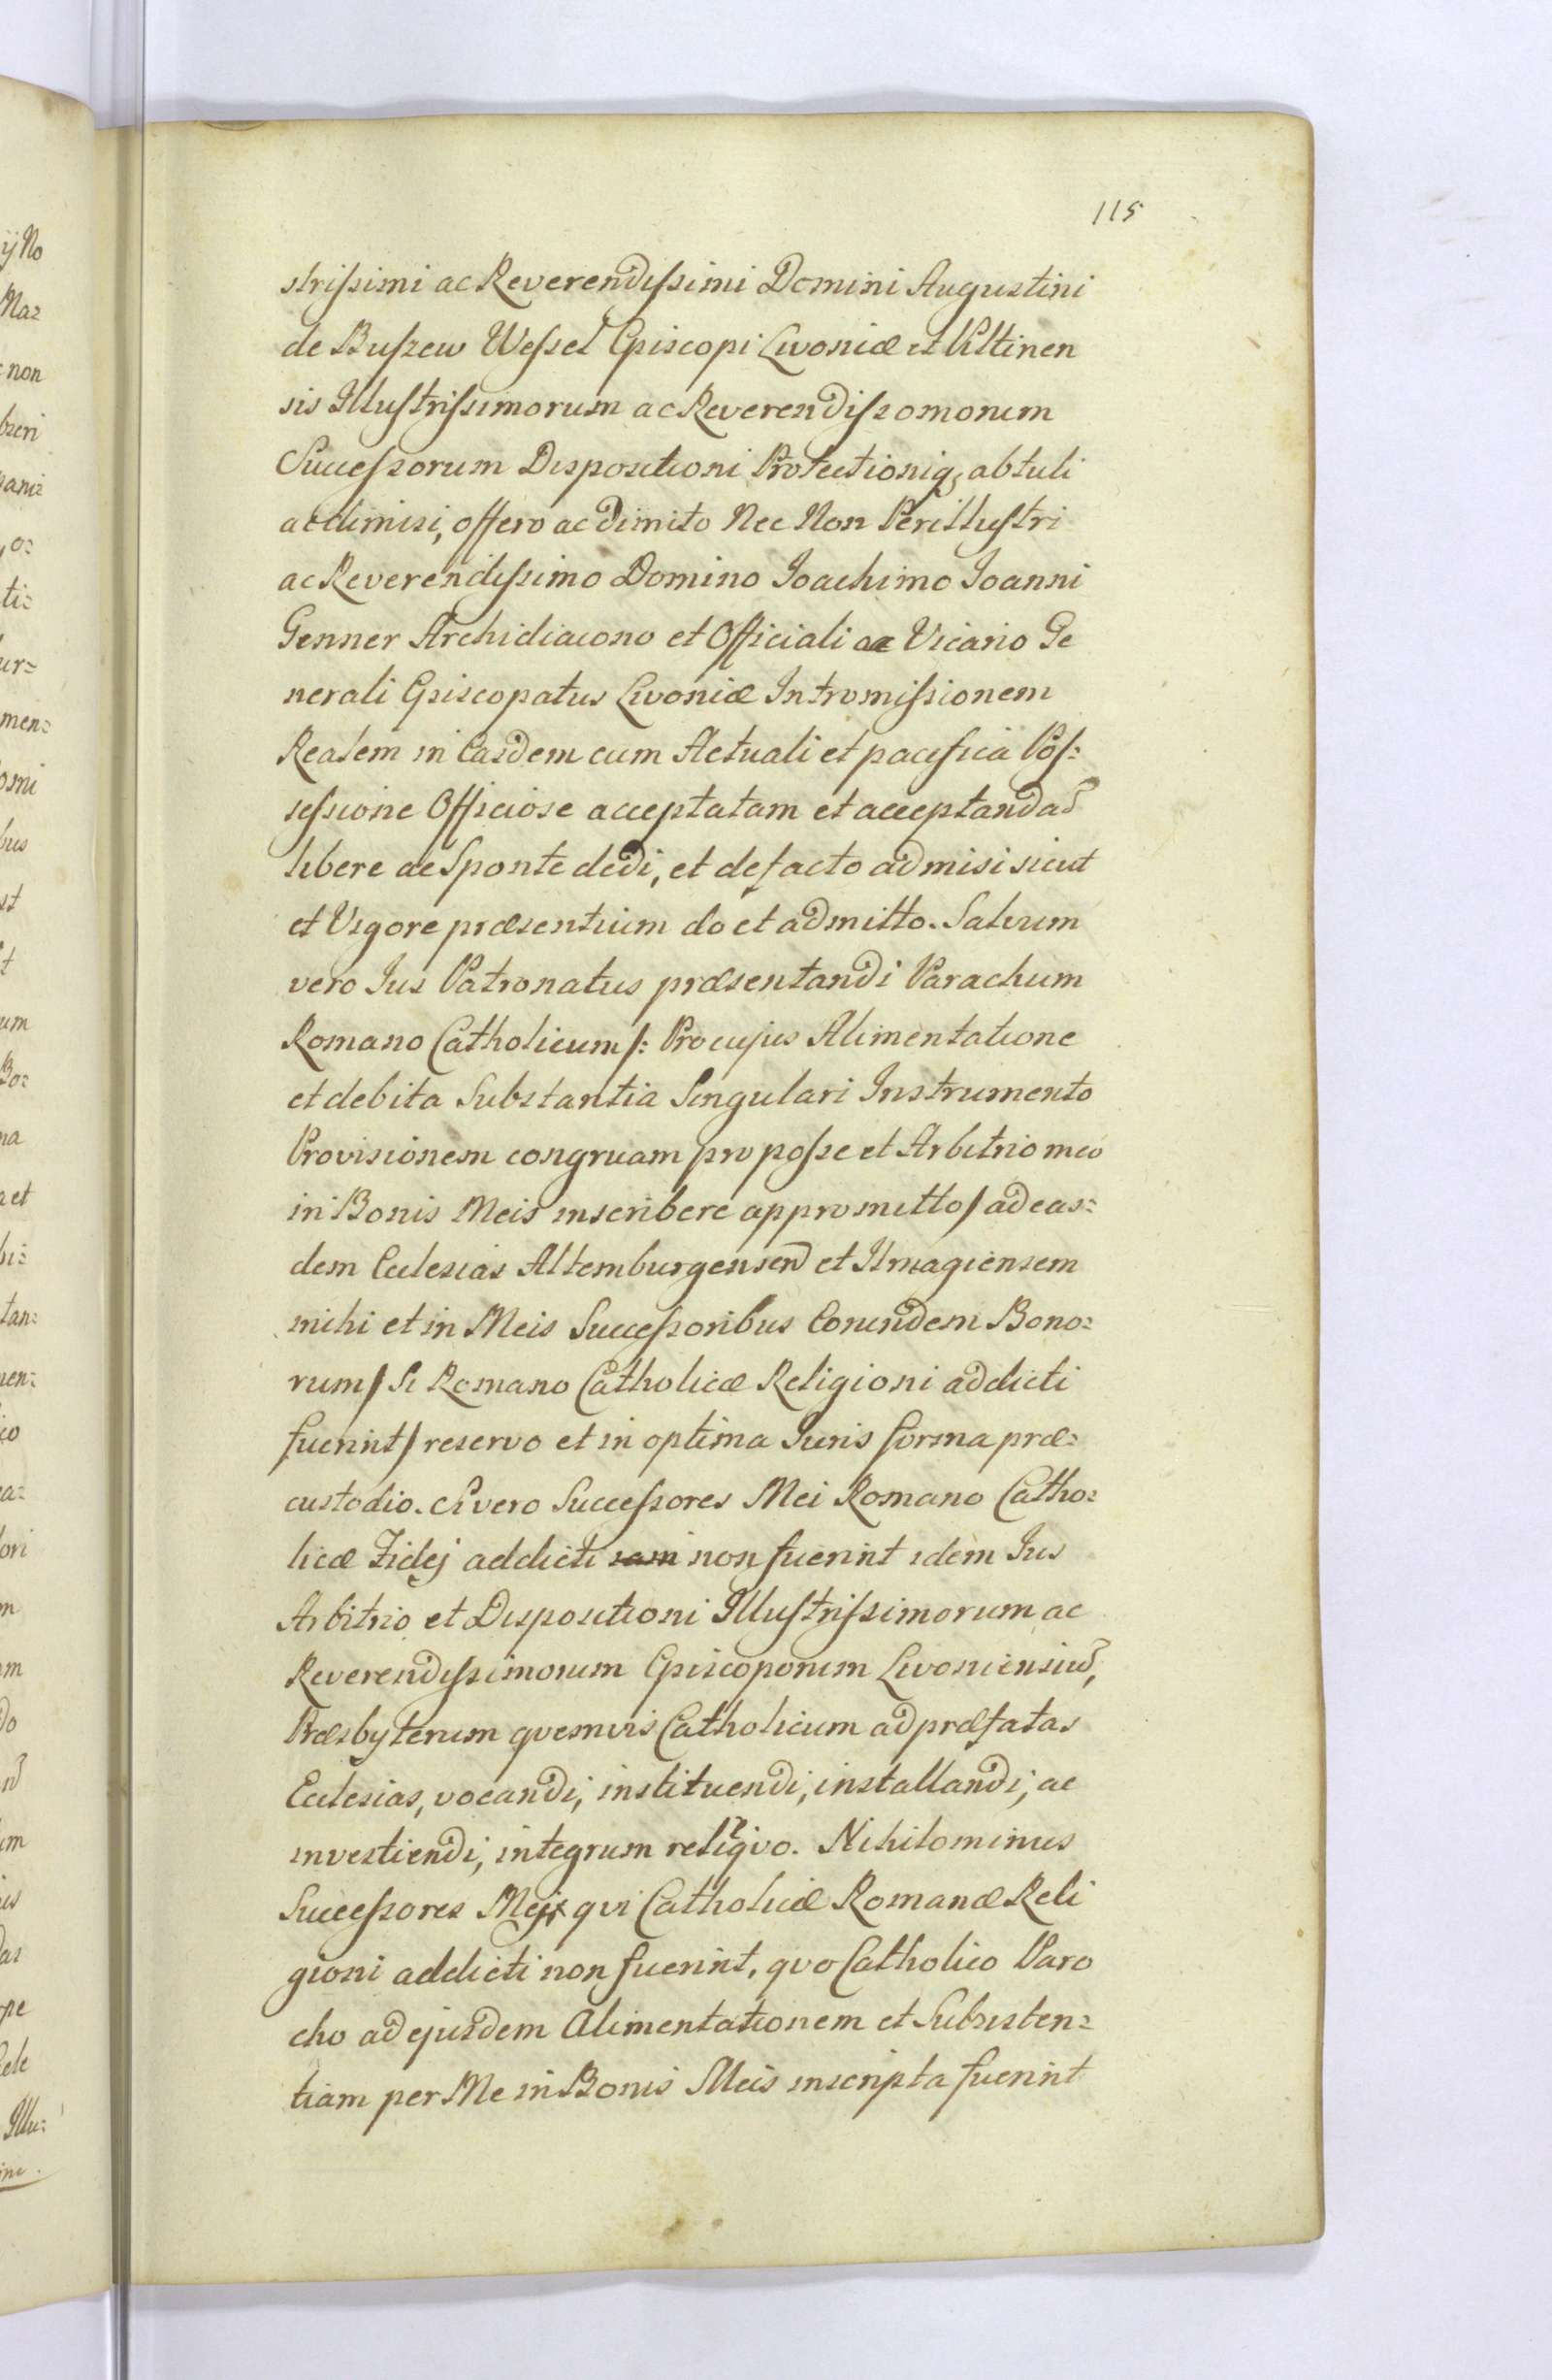 115
strissimi ac Reverendissimi Domini Augustini
de Buszew Wessel Episcopi Livoniæ et Piltinen
sis Illustrissimorum ac Reverendissomorum
Successorum Dispositioni Protectioniq; abtuli
ac dimisi, offero ac dimito Nec Non Perillustri
ac Reverendissimo Domino Ioachimo Ioanni
Genner Archidiacono et Officiali ac Vicario Ge
nerali Episcopatus Livoniæ Intromissionem
Realem in Easdem cum Actuali et pacifica Pos:
sessione Officiose acceptatam et acceptandam
libere ac Sponte dedi, et defacto admisi sicut
et Vigore præsentium do et admitto. Salvum
vero Ius Patronatus præsentandi Parachum
Romano Catholicum /: Pro cujus Alimentatione
et debita Substantia Singulari Instrumento
Provisionem congruam pro posse et Arbitrio meo
in Bonis Meis inscribere appromitto / ad eas:
dem Ecclesias Altemburgensem et Ilmagiensem
mihi et in Meis Successoribus Eorundem Bono:
rum / Si Romano Catholicæ Religioni addicti
fuerint / reservo et in optima Iuris forma præ:
custodio. Si vero Successores Mei Romano Catho:
licæ Fidej addicti non fuerint idem Ius
Arbitrio et Dispositioni Illustrissimorum ac
Reverendissimorum Episcoporum Livoniensium,
Præsbyterum qvemvis Catholicum ad præfatas
Ecclesias, vocandi, instituendi, installandi, ac
investiendi, integrum reliqvo. Nihilominus
Successores Mej qvi Catholicæ Romanæ Reli
gioni addicti non fuerint, qvo Catholico Paro
cho ad ejusdem Alimentationem et Subsisten:
tiam per Me in Bonis Meis inscripta fuerint